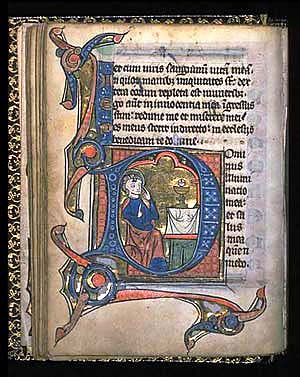 et cum uiris sanguinum uitam meā
n quorum manibus iniquitates st̄ dex
tera eorum repleta est muneribus
go aut̄ in innocentia mea ingressus
sum redime me et miserere mei
es meus stetit in directo in ecclesiis
benedicam te domine
Domi
nus
illumi
natio
mea
et sa
lus
mea
quē ti
mebo